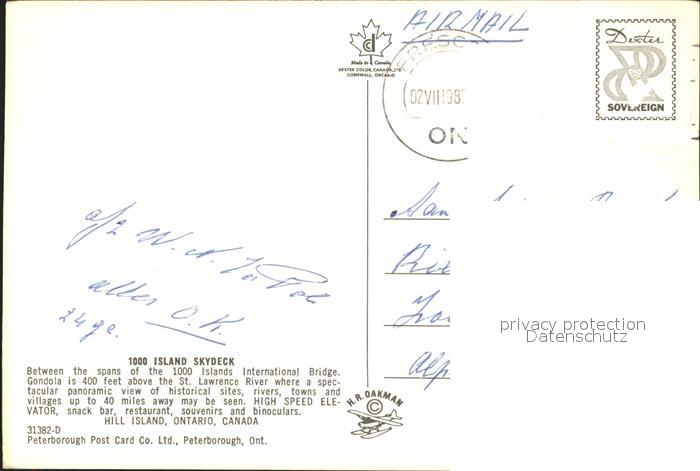 AIR MAIL
Made in Canada
DEXTER COLOR, CANADA, LTD
CORNWALL, ONTARIO
PRESC
02VII198
ON
Dexter
SOVEREIGN
W. N.
alles O.K.
privacy protection
Datenschutz
1000 ISLAND SKYDECK
Between the spans of the 1000 Islands International Bridge.
Gondola is 400 feet above the St. Lawrence River where a spec-
tacular panoramic view of historical sites, rivers, towns and
villages up to 40 miles away may be seen. HIGH SPEED ELE-
VATOR, snack bar, restaurant, souvenirs and binoculars.
HILL ISLAND, ONTARIO, CANADA
31382-D
Peterborough Post Card Co. Ltd., Peterborough, Ont.
H. R. OAKMAN
©